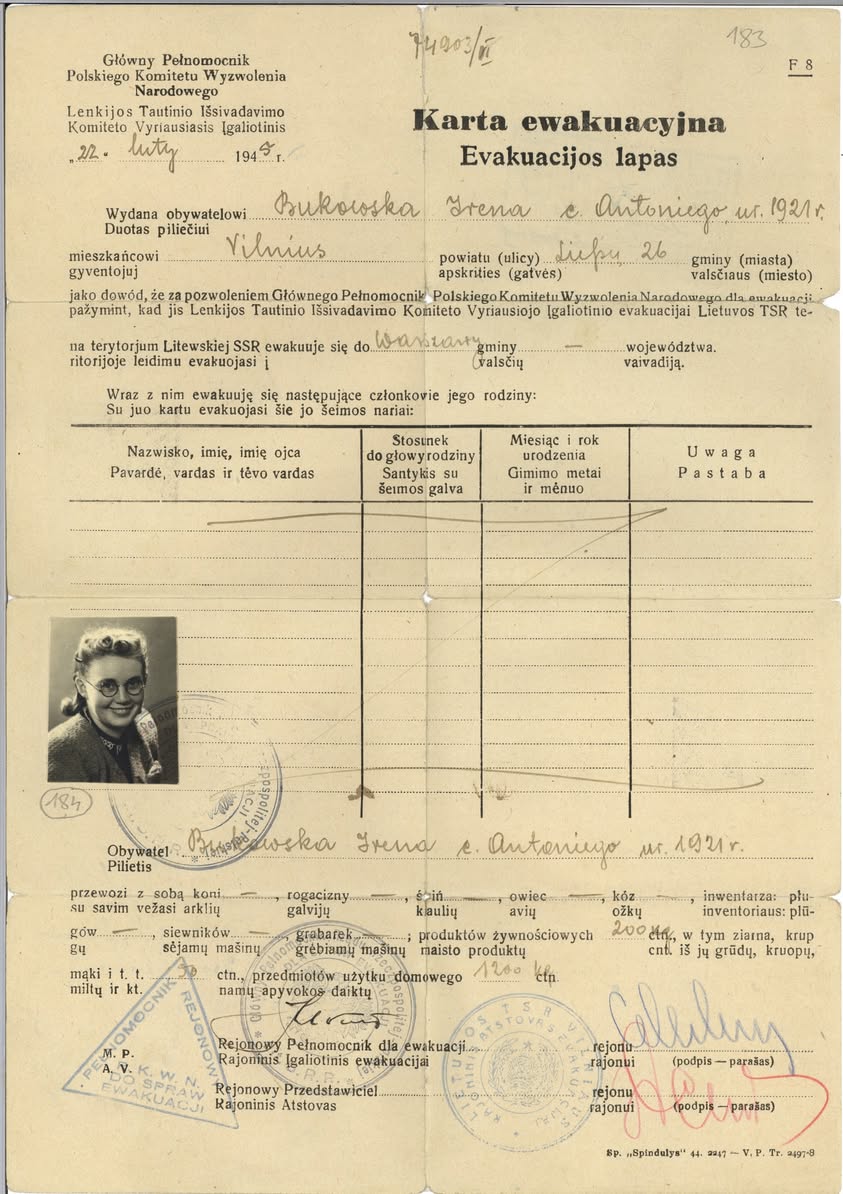 74203/VI
183
F 8
Główny Pełnomocnik
Polskiego Komitetu Wyzwolenia
Narodowego
Lenkijos Tautinio Išsivadavimo
Komiteto Vyriausiasis Įgaliotinis
„22" luty 1945 r.
Karta ewakuacyjna
Evakuacijos lapas
Wydana obywatelowi Bukowska Irena c. Antoniego ur. 1921 r.
Duotas piliečiui
mieszkańcowi Vilnius powiatu (ulicy) Liepų 26 gminy (miasta)
gyventojuj apskrities (gatvės) valsčiaus (miesto)
jako dowód, że za pozwoleniem Głównego Pełnomocnik Polskiego Komitetu Wyzwolenia Narodowego dla ewakuacji
pažymint, kad jis Lenkijos Tautinio Išsivadavimo Komiteto Vyriausiojo Įgaliotinio evakuacijai Lietuvos TSR te-
na terytorjum Litewskiej SSR ewakuuje się do Warszawy gminy — województwa.
ritorijoje leidimu evakuojasi į valsčių vaivadiją.
Wraz z nim ewakuuję się następujące członkovie jego rodziny:
Su juo kartu evakuojasi šie jo šeimos nariai:
Nazwisko, imię, imię ojca
Pavardė, vardas ir tėvo vardas
Stosunek
do głowy rodziny
Santykis su
šeimos galva
Miesiąc i rok
urodzenia
Gimimo metai
ir mėnuo
Uwaga
Pastaba
184
Obywatel Bukowska Irena c. Antoniego ur. 1921 r.
Pilietis
przewozi z sobą koni — , rogacizny — , świń — , owiec — , kóz — , inwentarza: płu-
su savim vežasi arklių galvijų kiaulių avių ožkų inventoriaus: plū-
gów — , siewników — , grabarek — ; produktów żywnościowych 200 kg ctn., w tym ziarna, krup
gų sėjamų mašinų grėbiamų mašinų maisto produktų cnt. iš jų grūdų, kruopų,
mąki i t. t. 50 ctn., przedmiotów użytku domowego 1200 kg ctn
miltų ir kt. namų apyvokos daiktų
M. P.
A. V.
Rejonowy Pełnomocnik dla ewakuacji rejonu
Rajoninis Įgaliotinis ewakuacijai rajonui (podpis — parašas)
Rejonowy Przedstawiciel rejonu
Rajoninis Atstovas rajonui (podpis — parašas)
PEŁNOMOCNIK REJONOWY
P. K. W. N.
DO SPRAW
EWAKUACJI
Sp. „Spindulys" 44. 2247 — V. P. Tr. 2497-8